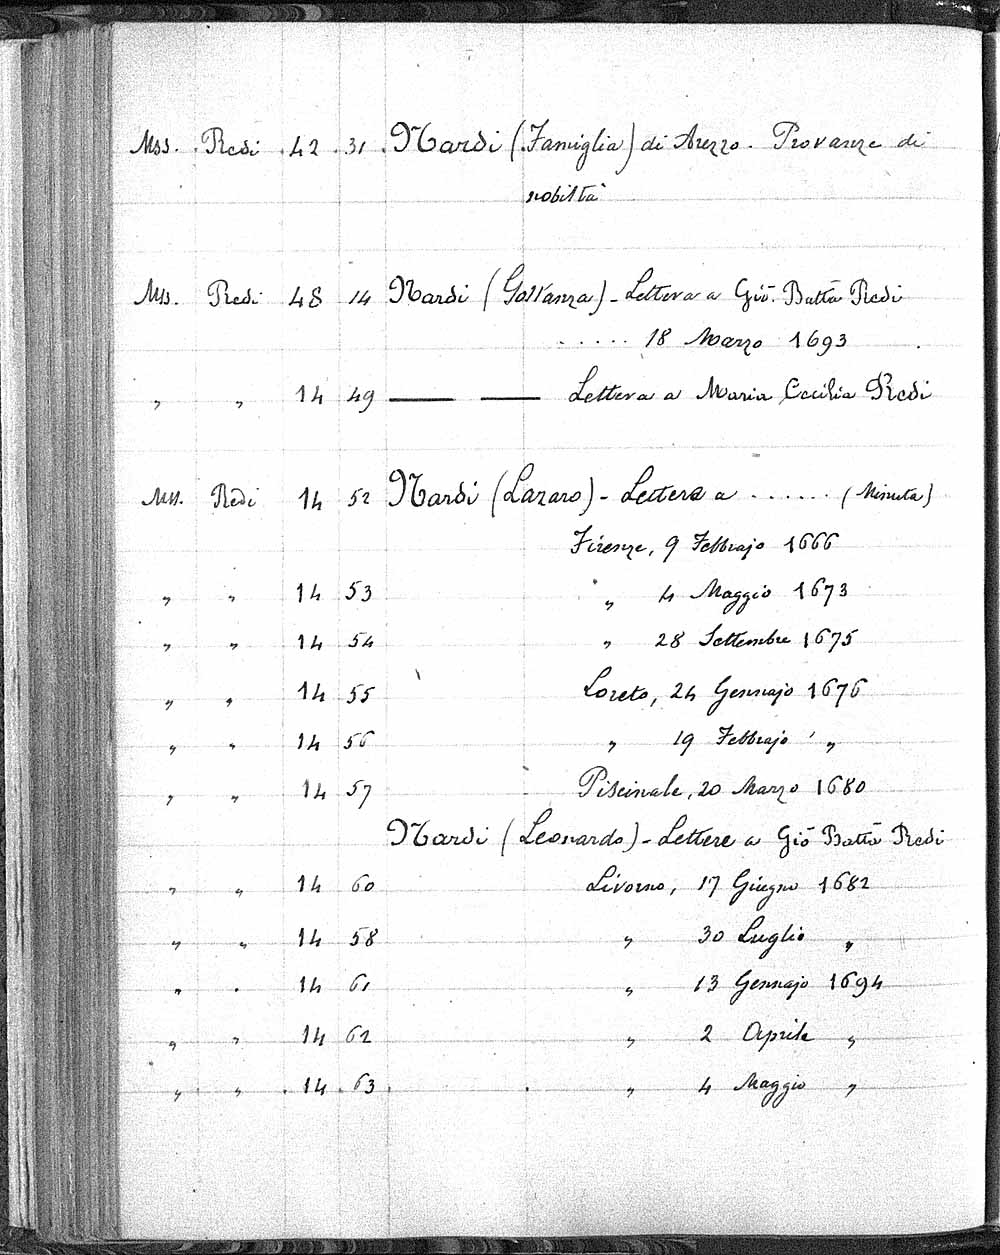 Mss. Redi 42 31 Nardi (Famiglia) di Arezzo. Provanze di
nobiltà
Mss. Redi 48 14 Nardi (Gostanza) - Lettera a Gio. Batta Redi
. . . . . 18 Marzo 1693
" " 14 49 —— —— Lettera a Maria Cecilia Redi
Mss. Redi 14 52 Nardi (Lazaro) - Lettere a . . . . . . (Minuta)
Firenze, 9 Febbrajo 1666
" " 14 53 " 4 Maggio 1673
" " 14 54 " 28 Settembre 1675
" " 14 55 Loreto, 24 Gennajo 1676
" " 14 56 " 19 Febbrajo "
" " 14 57 Piscinale, 20 Marzo 1680
Nardi (Leonardo) - Lettere a Gio Batta Redi
" " 14 60 Livorno, 17 Giugno 1682
" " 14 58 " 30 Luglio "
" " 14 61 " 13 Gennajo 1694
" " 14 62 " 2 Aprile "
" " 14 63 " 4 Maggio "